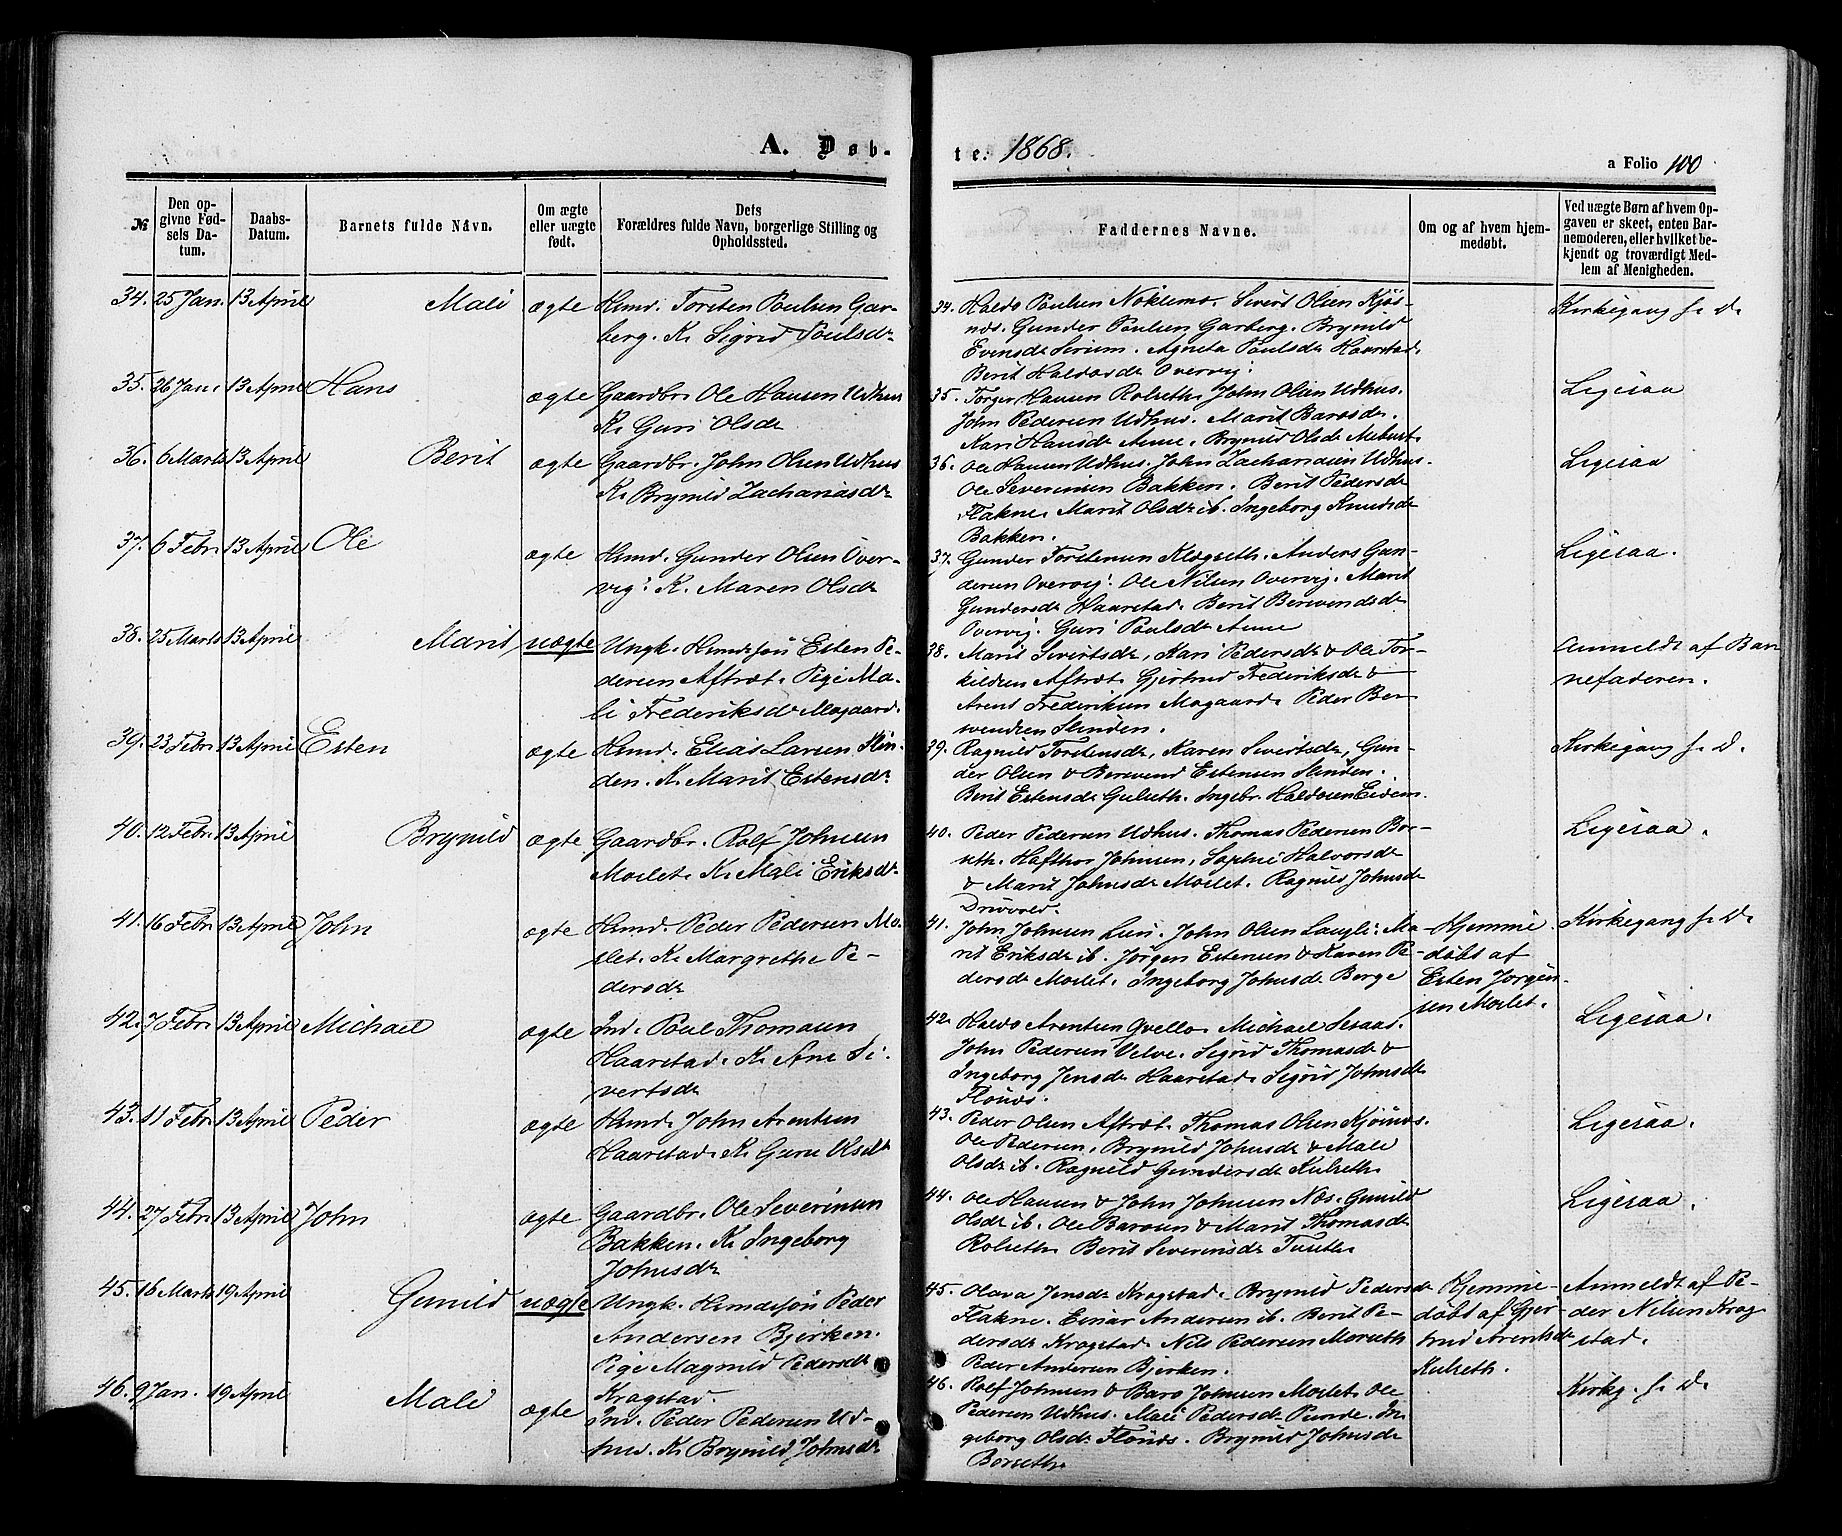 A. Døb-
te. 1868.
a Folio 100
№
Den op-
givne Fød-
sels Da-
tum.
Daabs-
Datum.
Barnets fulde Navn.
Om ægte
eller uægte
født.
Dets
Forældres fulde Navn, borgerlige Stilling og
Opholdssted.
Faddernes Navne.
Om og af hvem hjem-
medøbt.
Ved uægte Børn af hvem Op-
gaven er skeet, enten Bar-
nemoderen, eller hvilket be-
kjendt og troværdigt Med-
lem af Menigheden.
34. 25 Jan. 13 April Mali ægte Hmd. Torsten Paulsen Gar-
berg. K. Sigrid Paulsdr
34. Haldo Paulsen Noklemo. Sivert Olsen Kjøs-
næs. Gunder Paulsen Garberg. Brynild
Evensdr Sirium. Agneta Paulsdr Haarstad.
Berit Haldosdr Overvig.
Kirkegang f. D.
35. 26 Jan. 13 April Hans ægte Gaardbr. Ole Hansen Udhus
K. Guri Olsdr
35. Torger Hansen Rolseth. John Olsen Udhus.
John Pedersen Udhus. Marit Baroesdr.
Kari Hansdr Aune. Brynild Olsdr Mebust.
Ligesaa
36. 6 Marts 13 April Berit ægte Gaardbr. John Olsen Udhus
K. Brynild Zachariasdr
36. Ole Hansen Udhus. John Zachariasen Udhus.
Ole Severinsen Bakken. Berit Pedersdr
Flakne. Marit Olsdr ib. Ingeborg Knudsdr
Bakken.
Ligesaa
37. 6 Febr. 13 April Ole ægte Hmd. Gunder Olsen Over-
vig. K. Maren Olsdr
37. Gunder Torstensen Klegseth. Anders Gun-
dersen Overvig. Ole Nilsen Overvig. Marit
Gundersdr Haarstad. Berit Berevendsdr
Overvig. Guri Paulsdr Aune
Ligesaa.
38. 25 Marts 13 April Marit uægte Ungk. Hmdssøn Esten Pe-
dersen Aftræt. Pige Ma-
li Frederiksdr Mogaard.
38. Marit Sivertsdr, Kari Pedersdr & Ole Tor-
kildsen Aftræt. Gjertrud Frederiksdr &
Arent Frederiksen Mogaard. Peder Ber-
wendsen Slinden.
Anmeldt af Bar-
nefaderen.
39. 23 Febr. 13 April Esten ægte Hmd. Elias Larsen Slin-
den. K. Marit Estensdr
39. Ragnild Torstensdr, Karen Sivertsdr, Gun-
der Olsen & Berevend Estensen Slinden.
Berit Estensdr Gulseth. Ingebr. Haldosen Eidem.
Kirkegang f. D.
40. 12 Febr. 13 April Brynild ægte Gaardbr. Rolf Johnsen
Moslet. K. Mali Eriksdr
40. Peder Pedersen Udhus. Thomas Pedersen Bor-
seth. Hafthor Johnsen, Sophie Halvorsdr
& Marit Johnsdr Moslet. Ragnild Johnsdr
Drivvold.
Ligesaa.
41. 16 Febr. 13 April John ægte Hmd. Peder Pedersen Mo-
slet. K. Margrethe Pe-
dersdr
41. John Johnsen Lien. John Olsen Langli. Ma-
rit Eriksdr ib. Jørgen Estensen & Karen Pe-
dersdr Moslet. Ingeborg Johnsdr Berge
Hjemme-
døbt af
Esten Jørgen-
sen Moslet.
Kirkegang f. D.
42. 7 Febr. 13 April Michael ægte Ind. Poul Thomasen
Haarstad. K. Ane Si-
vertsdr
42. Haldo Arentsen Qvello. Michael Sesaas.
John Pedersen Velve. Sigrid Thomasdr &
Ingeborg Jensdr Haarstad. Sigrid Johnsdr
Flønæs.
Ligesaa.
43. 11 Febr. 13 April Peder ægte Hmd. John Arentsen
Haarstad. K. Guru Olsdr
43. Peder Olsen Aftræt. Thomas Olsen Kjøsnæs.
Ole Pedersen, Brynild Johnsdr & Mali
Olsdr ib. Ragnild Gundersdr Kulseth.
Ligesaa.
44. 27 Febr. 13 April John ægte Gaardbr. Ole Severinsen
Bakken. K. Ingeborg
Johnsdr
44. Ole Hansen & John Johnsen Næs. Gunild
Olsdr ib. Ole Baroesen & Marit Thomasdr
Rolseth. Berit Severinsdr Tuseth.
Ligesaa.
45. 16 Marts 19 April Gunild uægte Ungk. Hmdssøn Peder
Andersen Bjerken.
Pige Magnild Pedersdr
Kragstad.
45. Olava Jensdr Kragstad. Brynild Pedersdr
Flakne. Einar Andersen ib. Berit Pe-
dersdr Kragstad. Nils Pedersen Morseth
Peder Andersen Bjerken.
Hjemme-
døbt af Gjer-
trud Arentsdr
Kulseth.
Anmeldt af Pe-
der Nilsen Krag-
stad.
46. 9 Jan. 19 April Mali ægte Ind. Peder Pedersen Ud-
hus. K. Brynild Johnsdr
46. Rolf Johnsen & Baro Johnsen Moslet. Ole
Pedersen Udhus. Mali Pedersdr Runde. In-
geborg Olsdr Flønæs. Brynild Johnsdr
Borseth.
Kirkg. f. D.